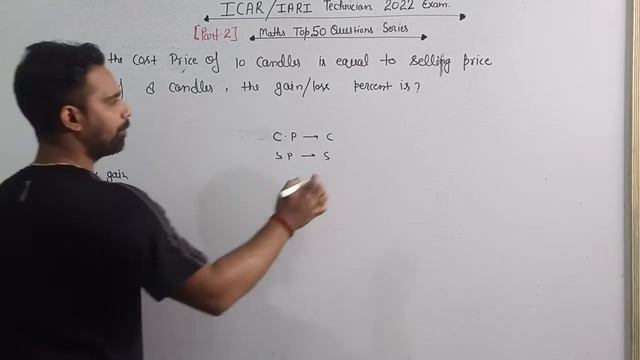 ICAR/IARI Technician 2022 Exam.
[Part-2] Maths Top 50 Questions Series
the Cost Price of 10 Candles is equal to selling price
8 Candles, the gain/loss percent is?
C.P → C
S P → S
gain